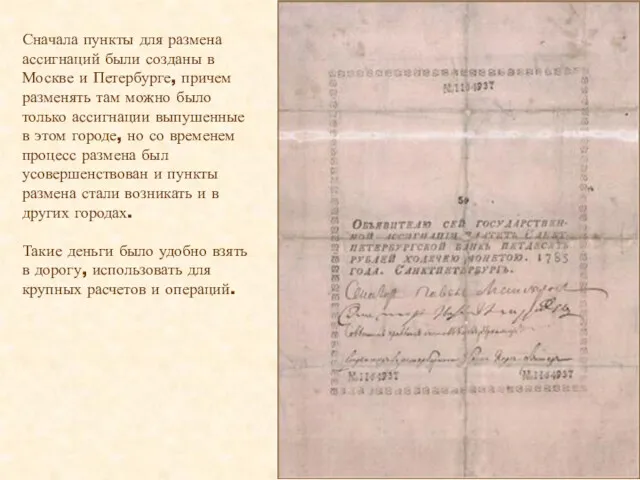 Сначала пункты для размена
ассигнаций были созданы в
Москве и Петербурге, причем
разменять там можно было
только ассигнации выпушенные
в этом городе, но со временем
процесс размена был
усовершенствован и пункты
размена стали возникать и в
других городах.
Такие деньги было удобно взять
в дорогу, использовать для
крупных расчетов и операций.
№1164937
50
Объявителю сей государствен-
ной ассигнаціи платитъ Санкт-
петербургской банкъ пятдесять
рублей ходячею монетою. 1785
года. Санктпетербургъ.
№1164937 №1164937